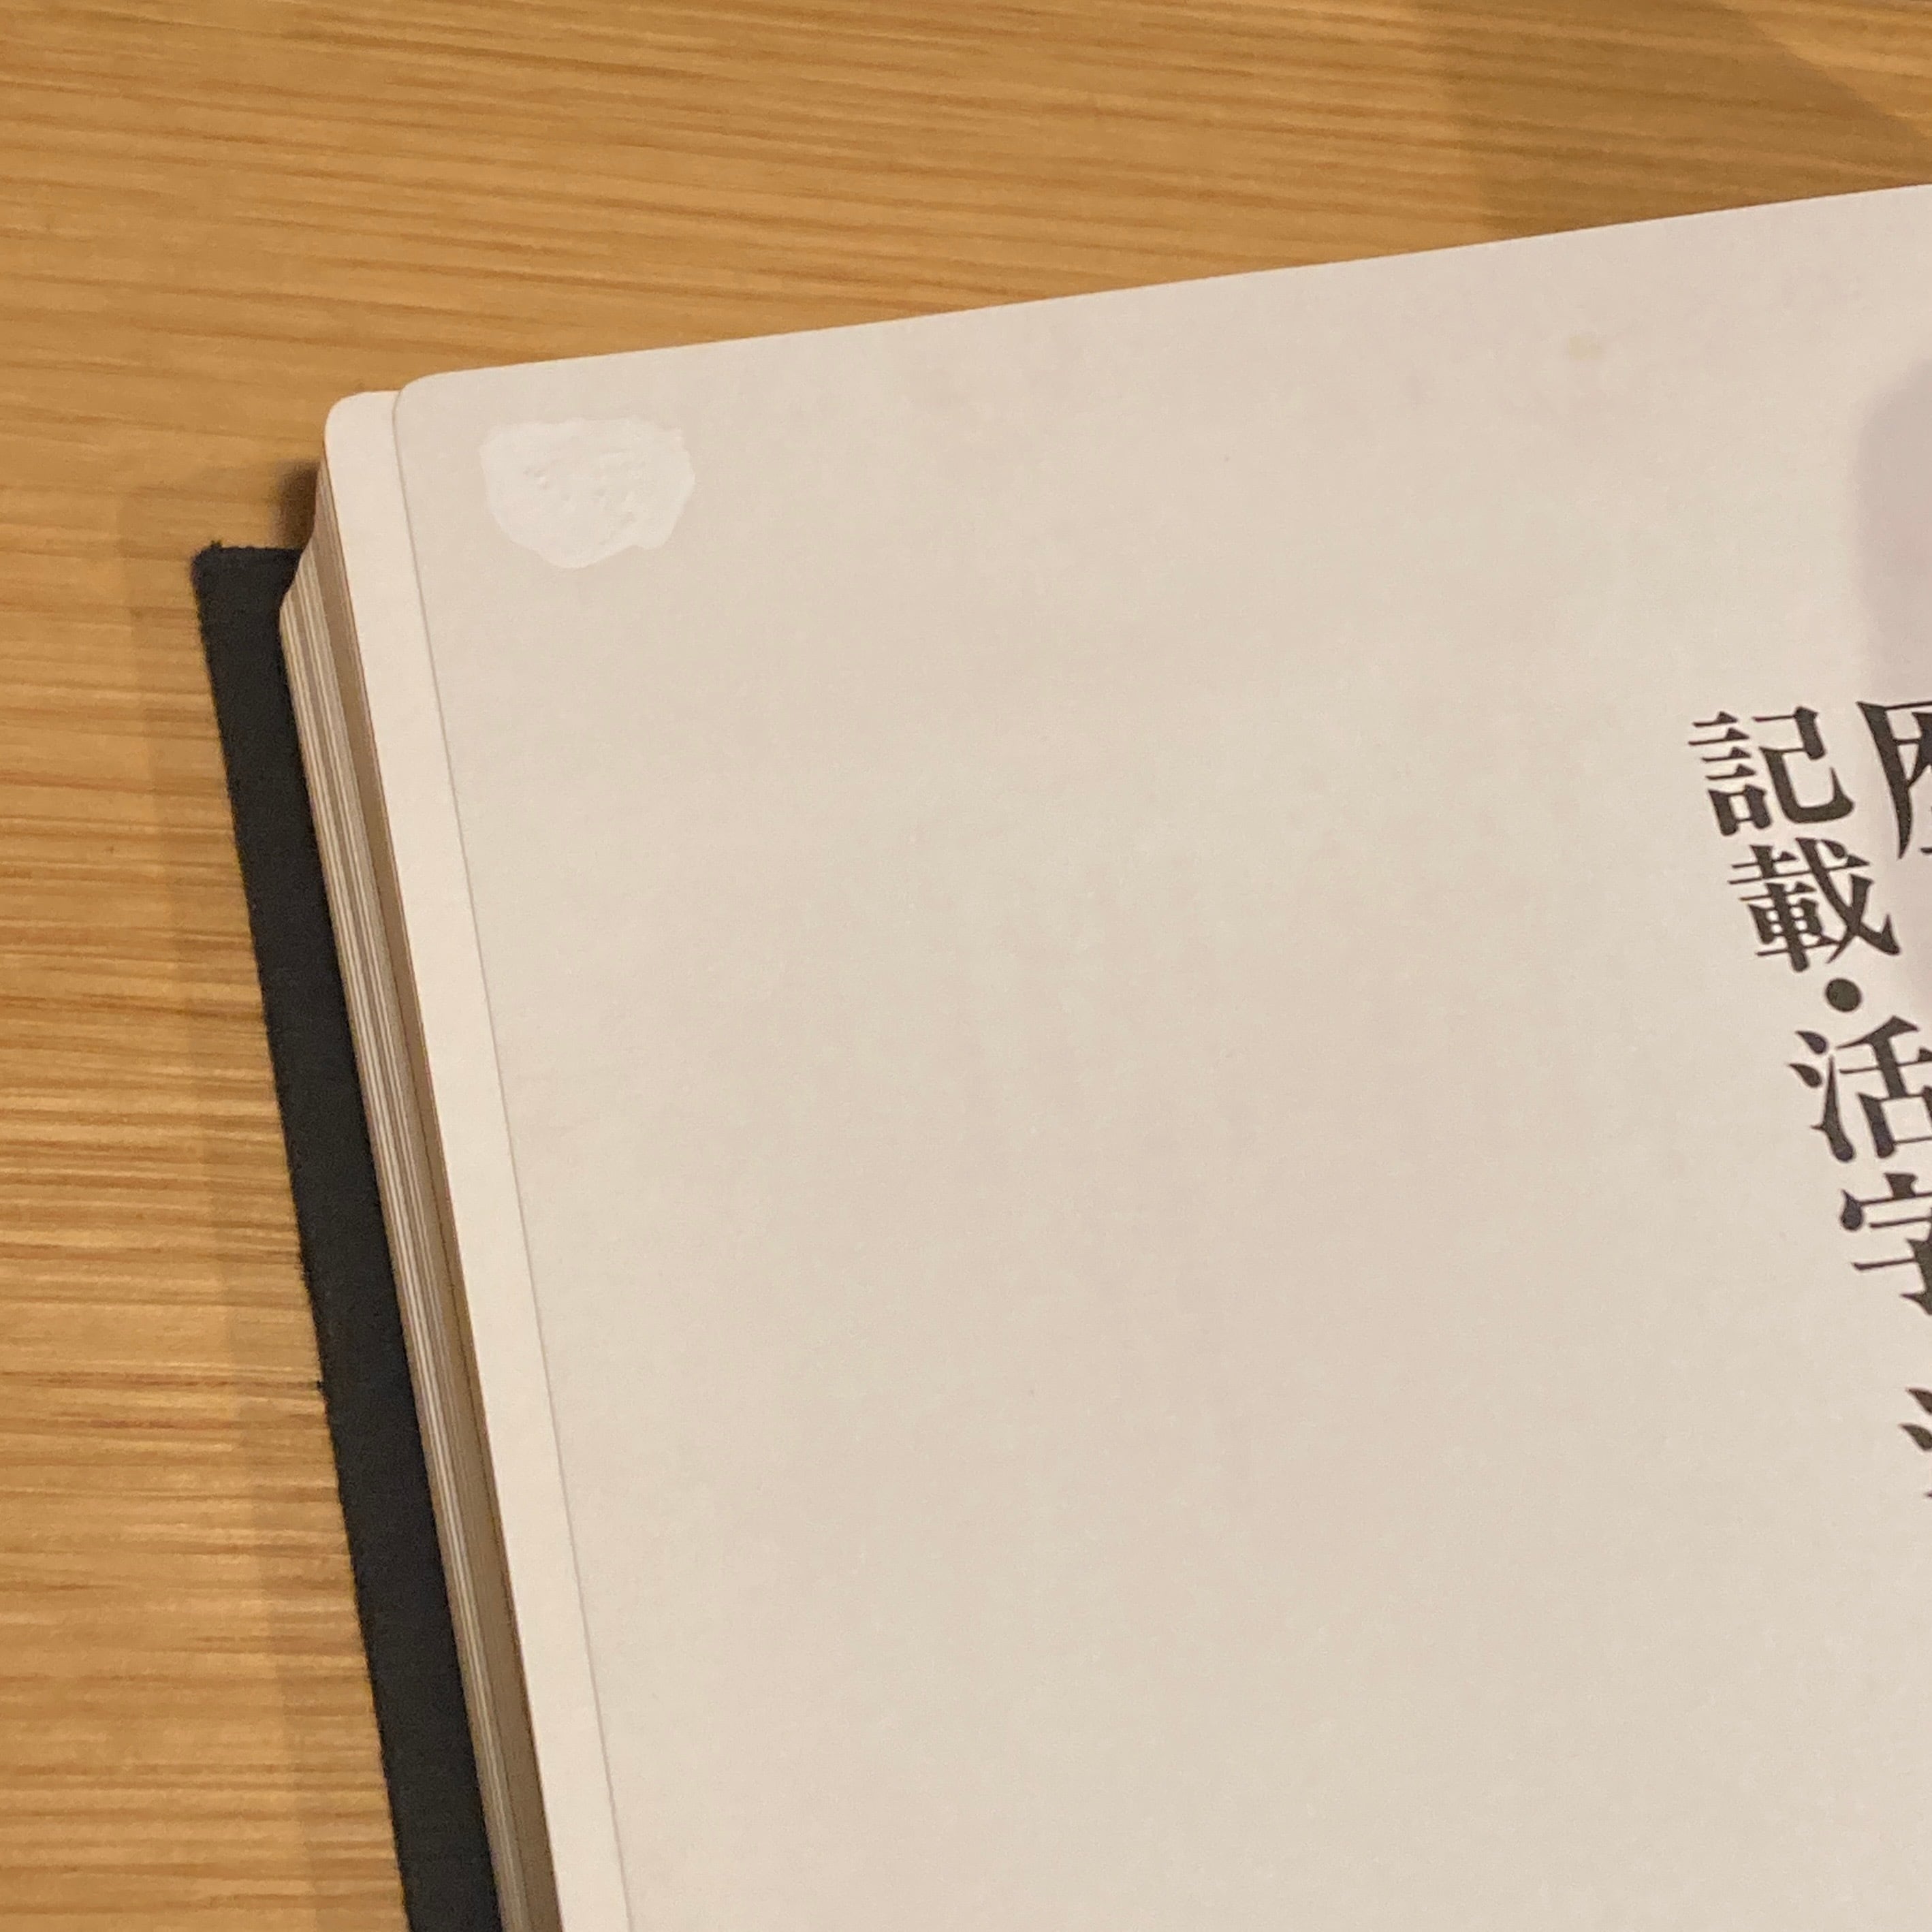 記載・活字